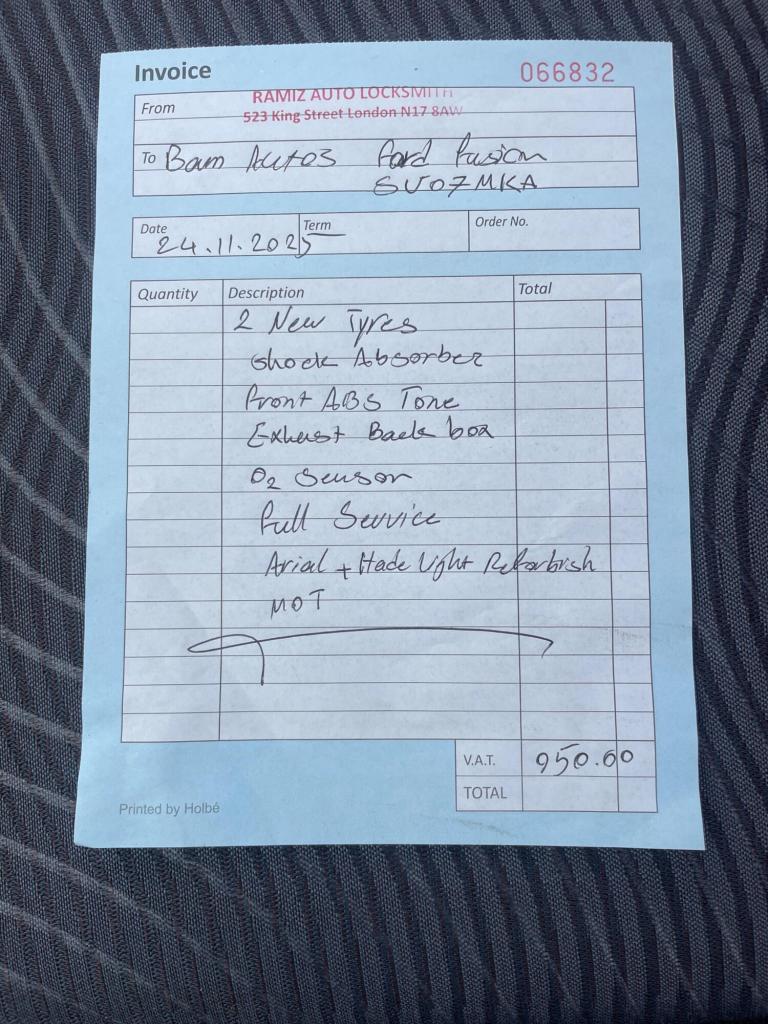 Invoice
066832
From
RAMIZ AUTO LOCKSMITH
523 King Street London N17 8AW
To Bam Autos Ford Fusion
SV07MKA
Date
24.11.2025
Term
Order No.
Quantity
Description
Total
2 New Tyres
Shock Absorber
Front ABS Tone
Exhust Back box
O2 Sensor
Full Service
Arial + Hade Light Refurbish
MOT
V.A.T.
950.00
TOTAL
Printed by Holbé